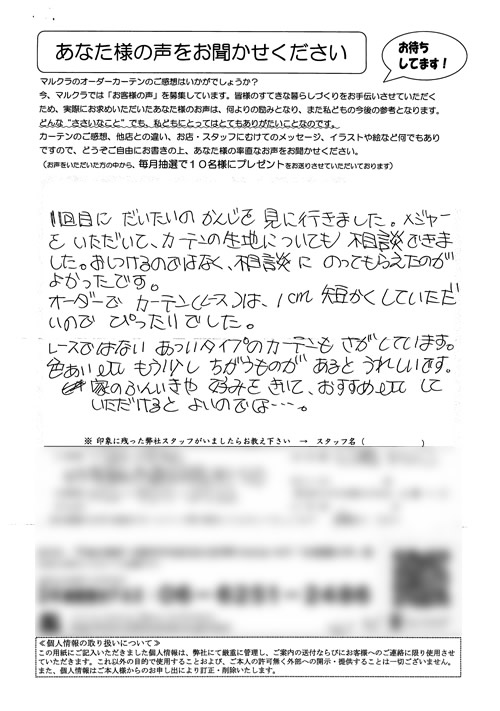 あなた様の声をお聞かせください
お待ち
してます！
マルクラのオーダーカーテンのご感想はいかがでしょうか？
今、マルクラでは「お客様の声」を募集しています。皆様のすてきな暮らしづくりをお手伝いさせていただく
ため、実際にお求めいただいたあなた様のお声は、何よりの励みとなり、また私どもの今後の参考となります。
どんな“ささいなこと”でも、私どもにとってはとてもありがたいことなのです。
カーテンのご感想、他店との違い、お店・スタッフにむけてのメッセージ、イラストや絵など何でもあり
ですので、どうぞご自由にお書きの上、あなた様の率直なお声をお聞かせください。
（お声をいただいた方の中から、毎月抽選で１０名様にプレゼントをお送りさせていただいております）
1回目に だいたいの かんじを 見に行きました。メジャー
を いただいて、カーテンの生地についても 相談できま
した。おしつけるのではなく、相談に のってもらえたのが
よかったです。
オーダーで カーテン(レース)は、1cm 短かくしていただ
いので ぴったりでした。
レースではない あついタイプのカーテンも さがしています。
色あい etc もう少し ちがうものが あると うれしいです。
家のふんいきや 好みを きいて、おすすめ etc して
いただけると よいのでは…。
※ 印象に残った弊社スタッフがいましたらお教え下さい → スタッフ名（ ）
06-6251-2486
≪個人情報の取り扱いについて≫
この用紙にご記入いただきました個人情報は、弊社にて厳重に管理し、ご案内の送付ならびにお客様へのご連絡に限り使用させ
ていただきます。これ以外の目的で使用することおよび、ご本人の許可無く外部への開示・提供することは一切ございません。
また、個人情報はご本人様からのお申し出により訂正・削除いたします。